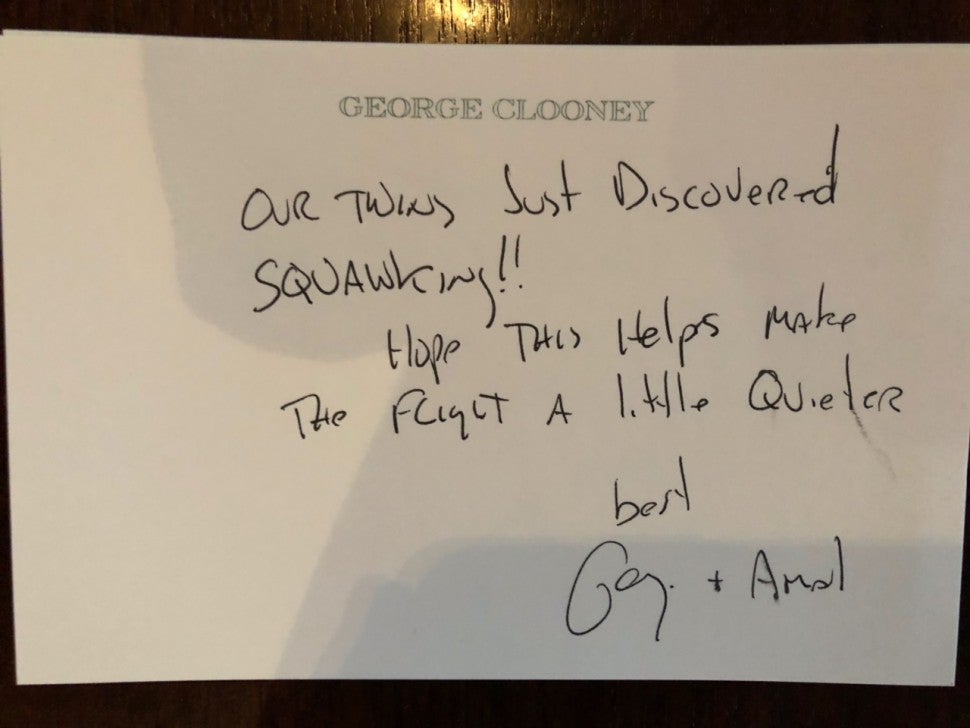 GEORGE CLOONEY
OUR TWINS JUST DISCOVERED
SQUAWKING!!
HOPE THIS HELPS MAKE
THE FLIGHT A little QUIETER
best
Geo. + Amal